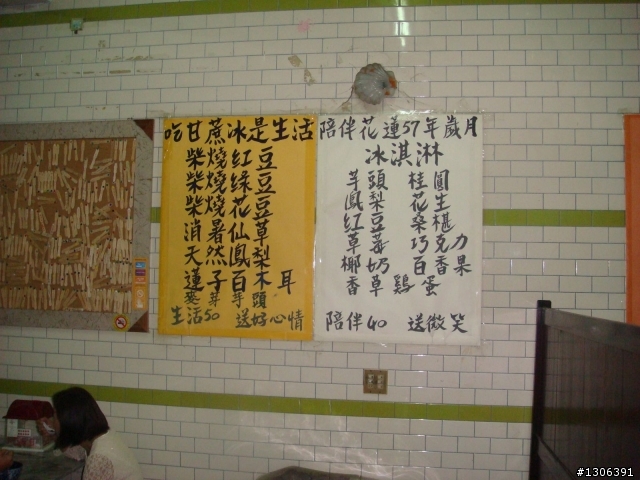 吃甘蔗冰是生活
柴燒紅豆
柴燒绿豆
柴燒花豆
消暑仙草
天然鳳梨
蓮子百木耳
麥芽芋頭
生活50 送好心情
陪伴花蓮57年歲月
冰淇淋
芋頭 桂圓
鳳梨 花生
紅豆 桑椹
草莓 巧克力
椰奶 百香果
香草雞蛋
陪伴40 送微笑
#1306391